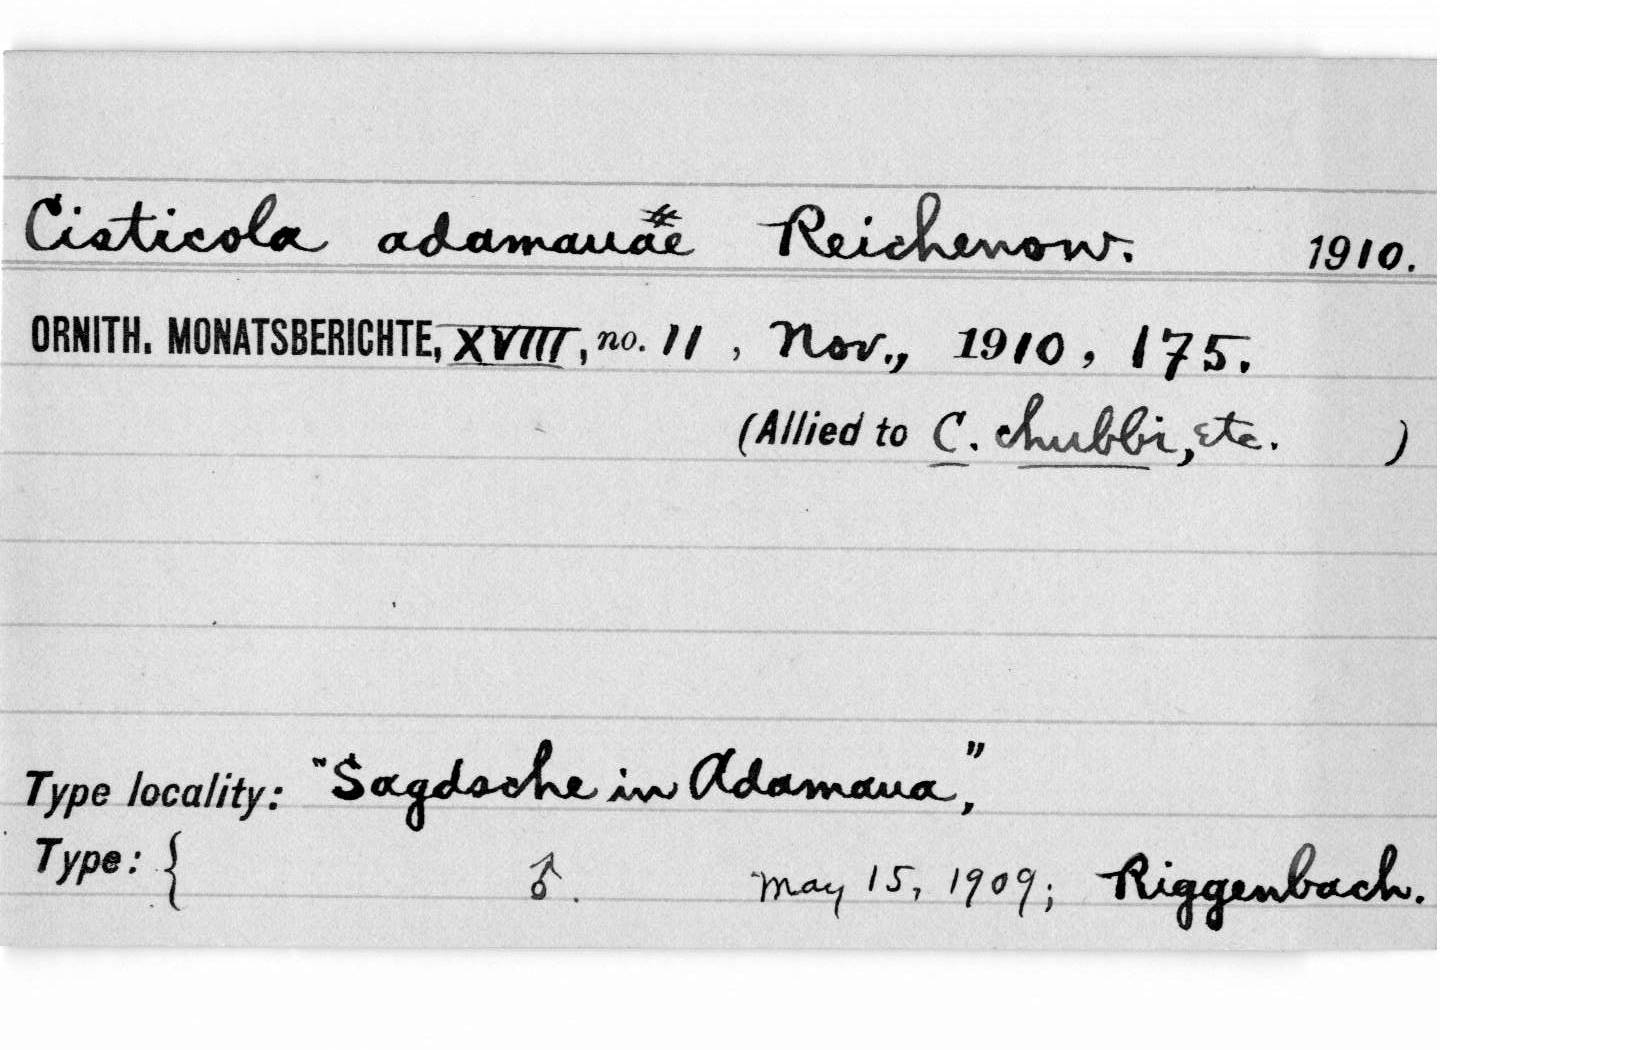 Cisticola adamauae Reichenow. 1910.
ORNITH. MONATSBERICHTE, XVIII, no. 11, Nov., 1910, 175.
(Allied to C. chubbi, etc. )
Type locality: "Sagdsche in Adamaua",
Type: { ♂. May 15, 1909; Riggenbach.